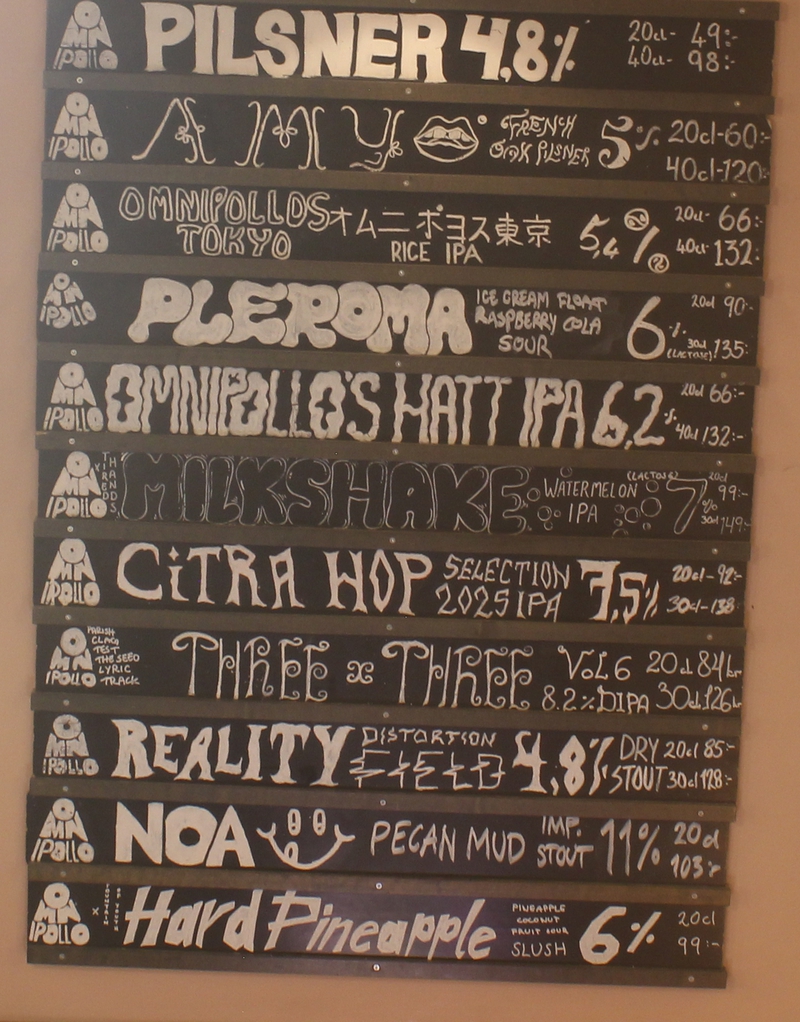 OMNIPOLLO PILSNER 4,8% 20cl- 49:-
40cl- 98:-
OMNIPOLLO AMY FRENCH OAK PILSNER 5% 20cl-60:-
40cl-120:-
OMNIPOLLO OMNIPOLLOS TOKYO オムニポヨス東京 RICE IPA 5,4% 20cl- 66:-
40cl- 132:-
OMNIPOLLO PLEROMA ICE CREAM FLOAT
RASPBERRY COLA
SOUR 6% (LACTOSE) 20cl 90:-
30cl 135:-
OMNIPOLLO OMNIPOLLO'S HATT IPA 6,2% 20cl 66:-
40cl 132:-
OMNIPOLLO MILKSHAKE WATERMELON
IPA (LACTOSE) 7% 20cl 99:-
30cl 149:-
OMNIPOLLO CiTRA HOP SELECTION
2025 IPA 7,5% 20cl- 92:-
30cl- 138:-
OMNIPOLLO PARISH
TEST
THE SEED
LYRIC
TRACK
THREE x THREE VOL 6 20cl 84kr
8.2% DIPA 30cl 126kr
OMNIPOLLO REALITY DISTORTION
FIELD 4,8% DRY
STOUT 20cl 85:-
30cl 128:-
OMNIPOLLO NOA PECAN MUD IMP.
STOUT 11% 20cl
103:-
OMNIPOLLO x FOUNTAIN
OF YOUTH
Hard Pineapple PINEAPPLE
COCONUT
FRUIT SOUR
SLUSH 6% 20cl
99:-